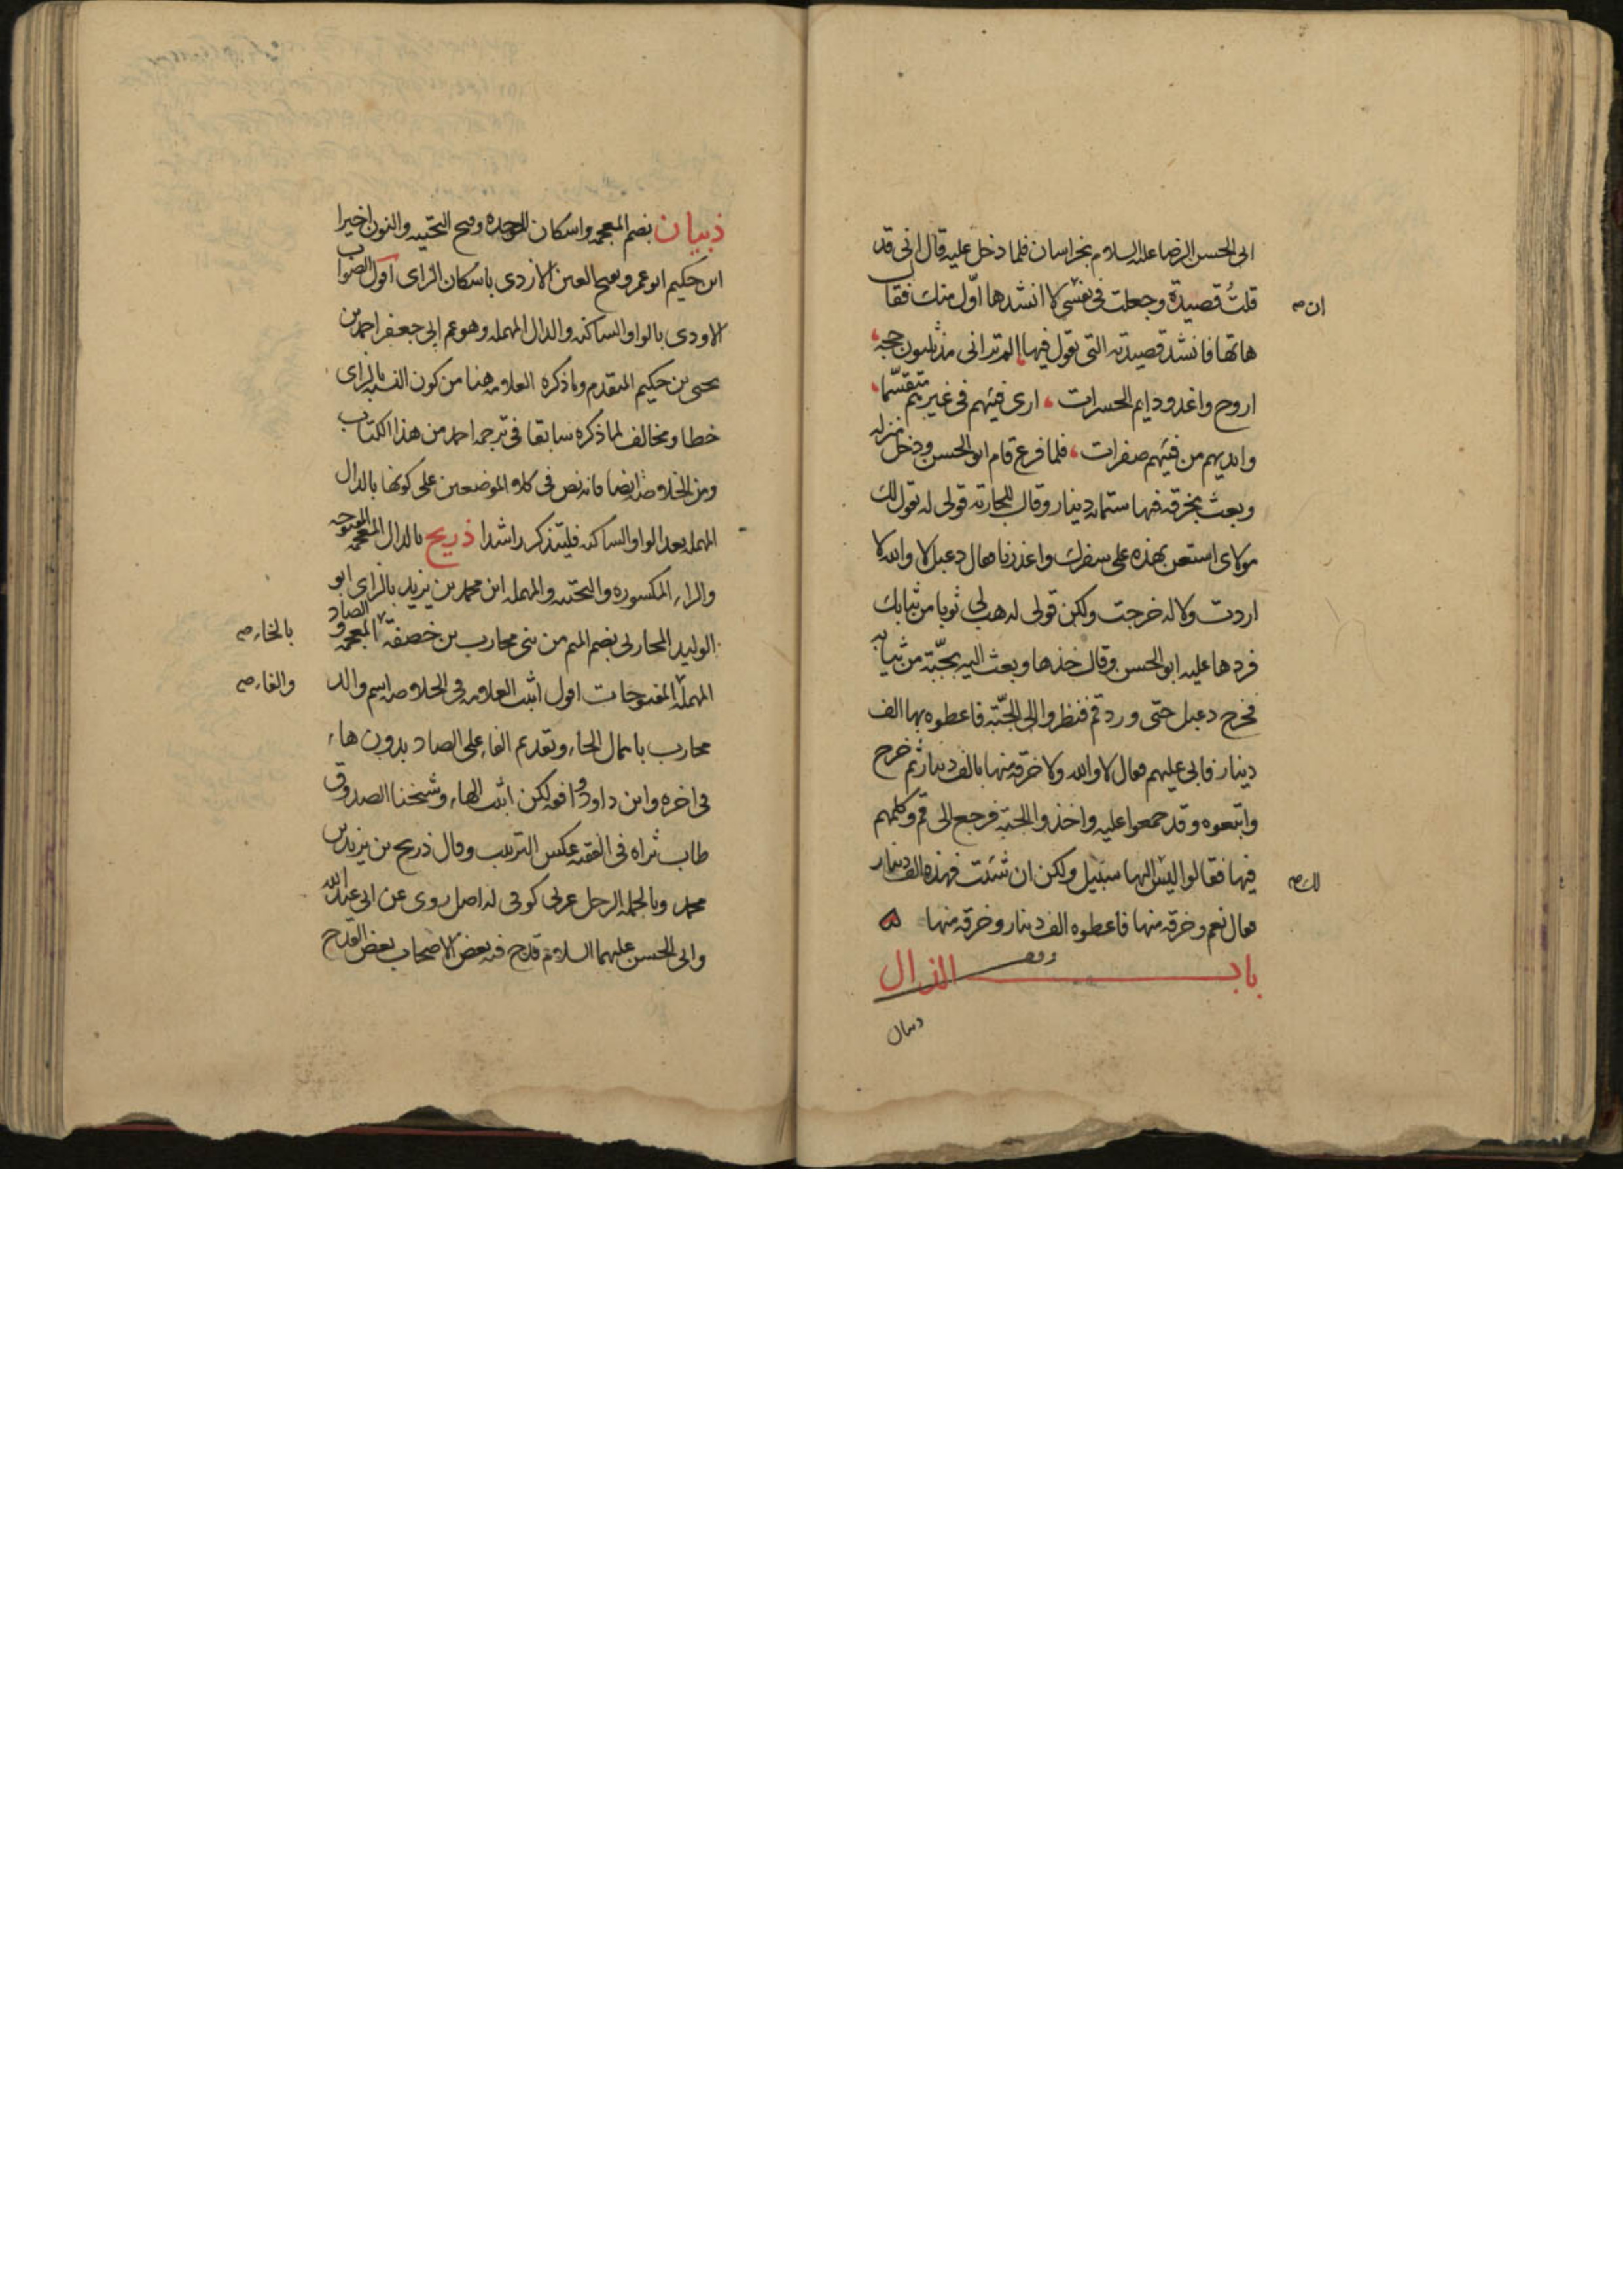 الى الحسن الرضا عليه السلام بخراسان فلما دخل عليه قال انى قد
قلتُ قصيدة وجعلت فى نفسى لا انشدها اوّل منك فقال
ان صح
هاتها فانشد قصيدته التى يقول فيها الم تر انى مذ ثلثون حجة
اروح واغدو دايم الحسرات ، ارى فيئهم فى غيرهم متقسّما
وايديهم من فيئهم صفرات ، فلما فرغ قام ابو الحسن ودخل منزله
وبعث بخرقة فيها ستمائة دينار وقال للجارية قولى له يقول لك
مولاى استعن بهذه على سفرك واعذرنا فقال دعبل لا والله لا
اردت ولا له خرجت ولكن قولى له هب لى ثوبا من ثيابك
فردها عليه ابو الحسن وقال خذها وبعث اليه بجبّة من ثيابه
فخرج دعبل حتى ورد قم فنظروا الى الجبّة فاعطوه بها الف
دينار فابى عليهم فقال لا والله ولا خرقة منها بالف دينار ثم خرج
واتبعوه وقد جمعوا عليه واخذوا الجبة فرجع الى قم وكلمهم
فيها فقالوا ليس اليها سبيل ولكن ان شئت فهذه الف دينار
لك صح
فقال نعم وخرقة منها فاعطوه الف دينار وخرقة منها ه
باب الذال
ذبيان
ذبيان بضم المعجمه واسكان الموحده وفتح التحتيه والنون اخيرا
ابن حكيم ابو عمرو بفتح العين الازدى باسكان الزاى اقول الصواب
الاودى بالواو الساكنه والدال المهمله وهو عم ابى جعفر احمد بن
يحيى بن حكيم المتقدم وما ذكره العلامه هنا من كون النسبه بالزاى
خطا ومخالف لما ذكره سابقا فى ترجمه احمد من هذا الكتاب
ومن الخلاصه ايضا فانه نص فى كلا الموضعين على كونها بالدال
المهمله بعد الواو الساكنه فليتذكر راشدا ذريح بالذال المعجمه المفتوحه
والراء المكسوره والتحتيه والمهمله ابن محمد بن يزيد بالزاى ابو
الوليد المحاربى بضم الميم من بنى محارب بن خصفة المعجمه والصاد
بالخاء صح
المهملة المفتوحات اقول اثبت العلامه فى الخلاصه اسم والد
والفاء صح
محارب باهمال الحاء وتقديم الفاء على الصاد بدون هاء
فى اخره وابن داود وافقه لكن اثبت الهاء وشيخنا الصدوق
طاب ثراه فى الفقيه عكس الترتيب وقال ذريح بن يزيد بن
محمد وبالجمله الرجل عربى كوفى له اصل روى عن ابى عبد الله
وابى الحسن عليهما السلام قدح فيه بعض الاصحاب بعض القدح